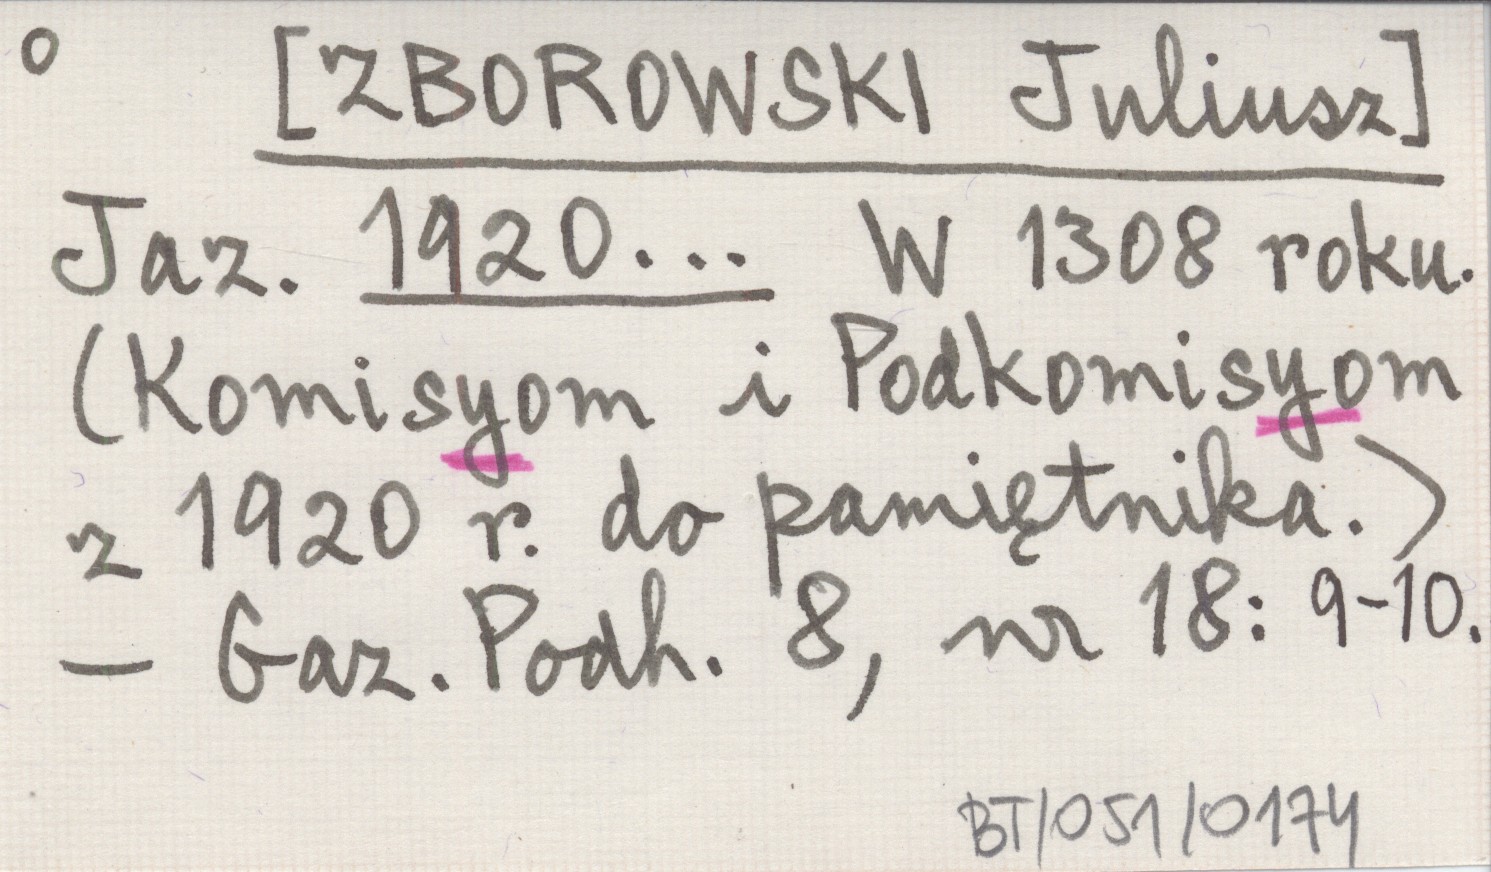 o [ZBOROWSKI Juliusz]
Jaz. 1920... W 1308 roku.
(Komisyom i Podkomisyom
z 1920 r. do pamiętnika.)
— Gaz. Podh. 8, nr 18: 9-10.
BT/051/0174